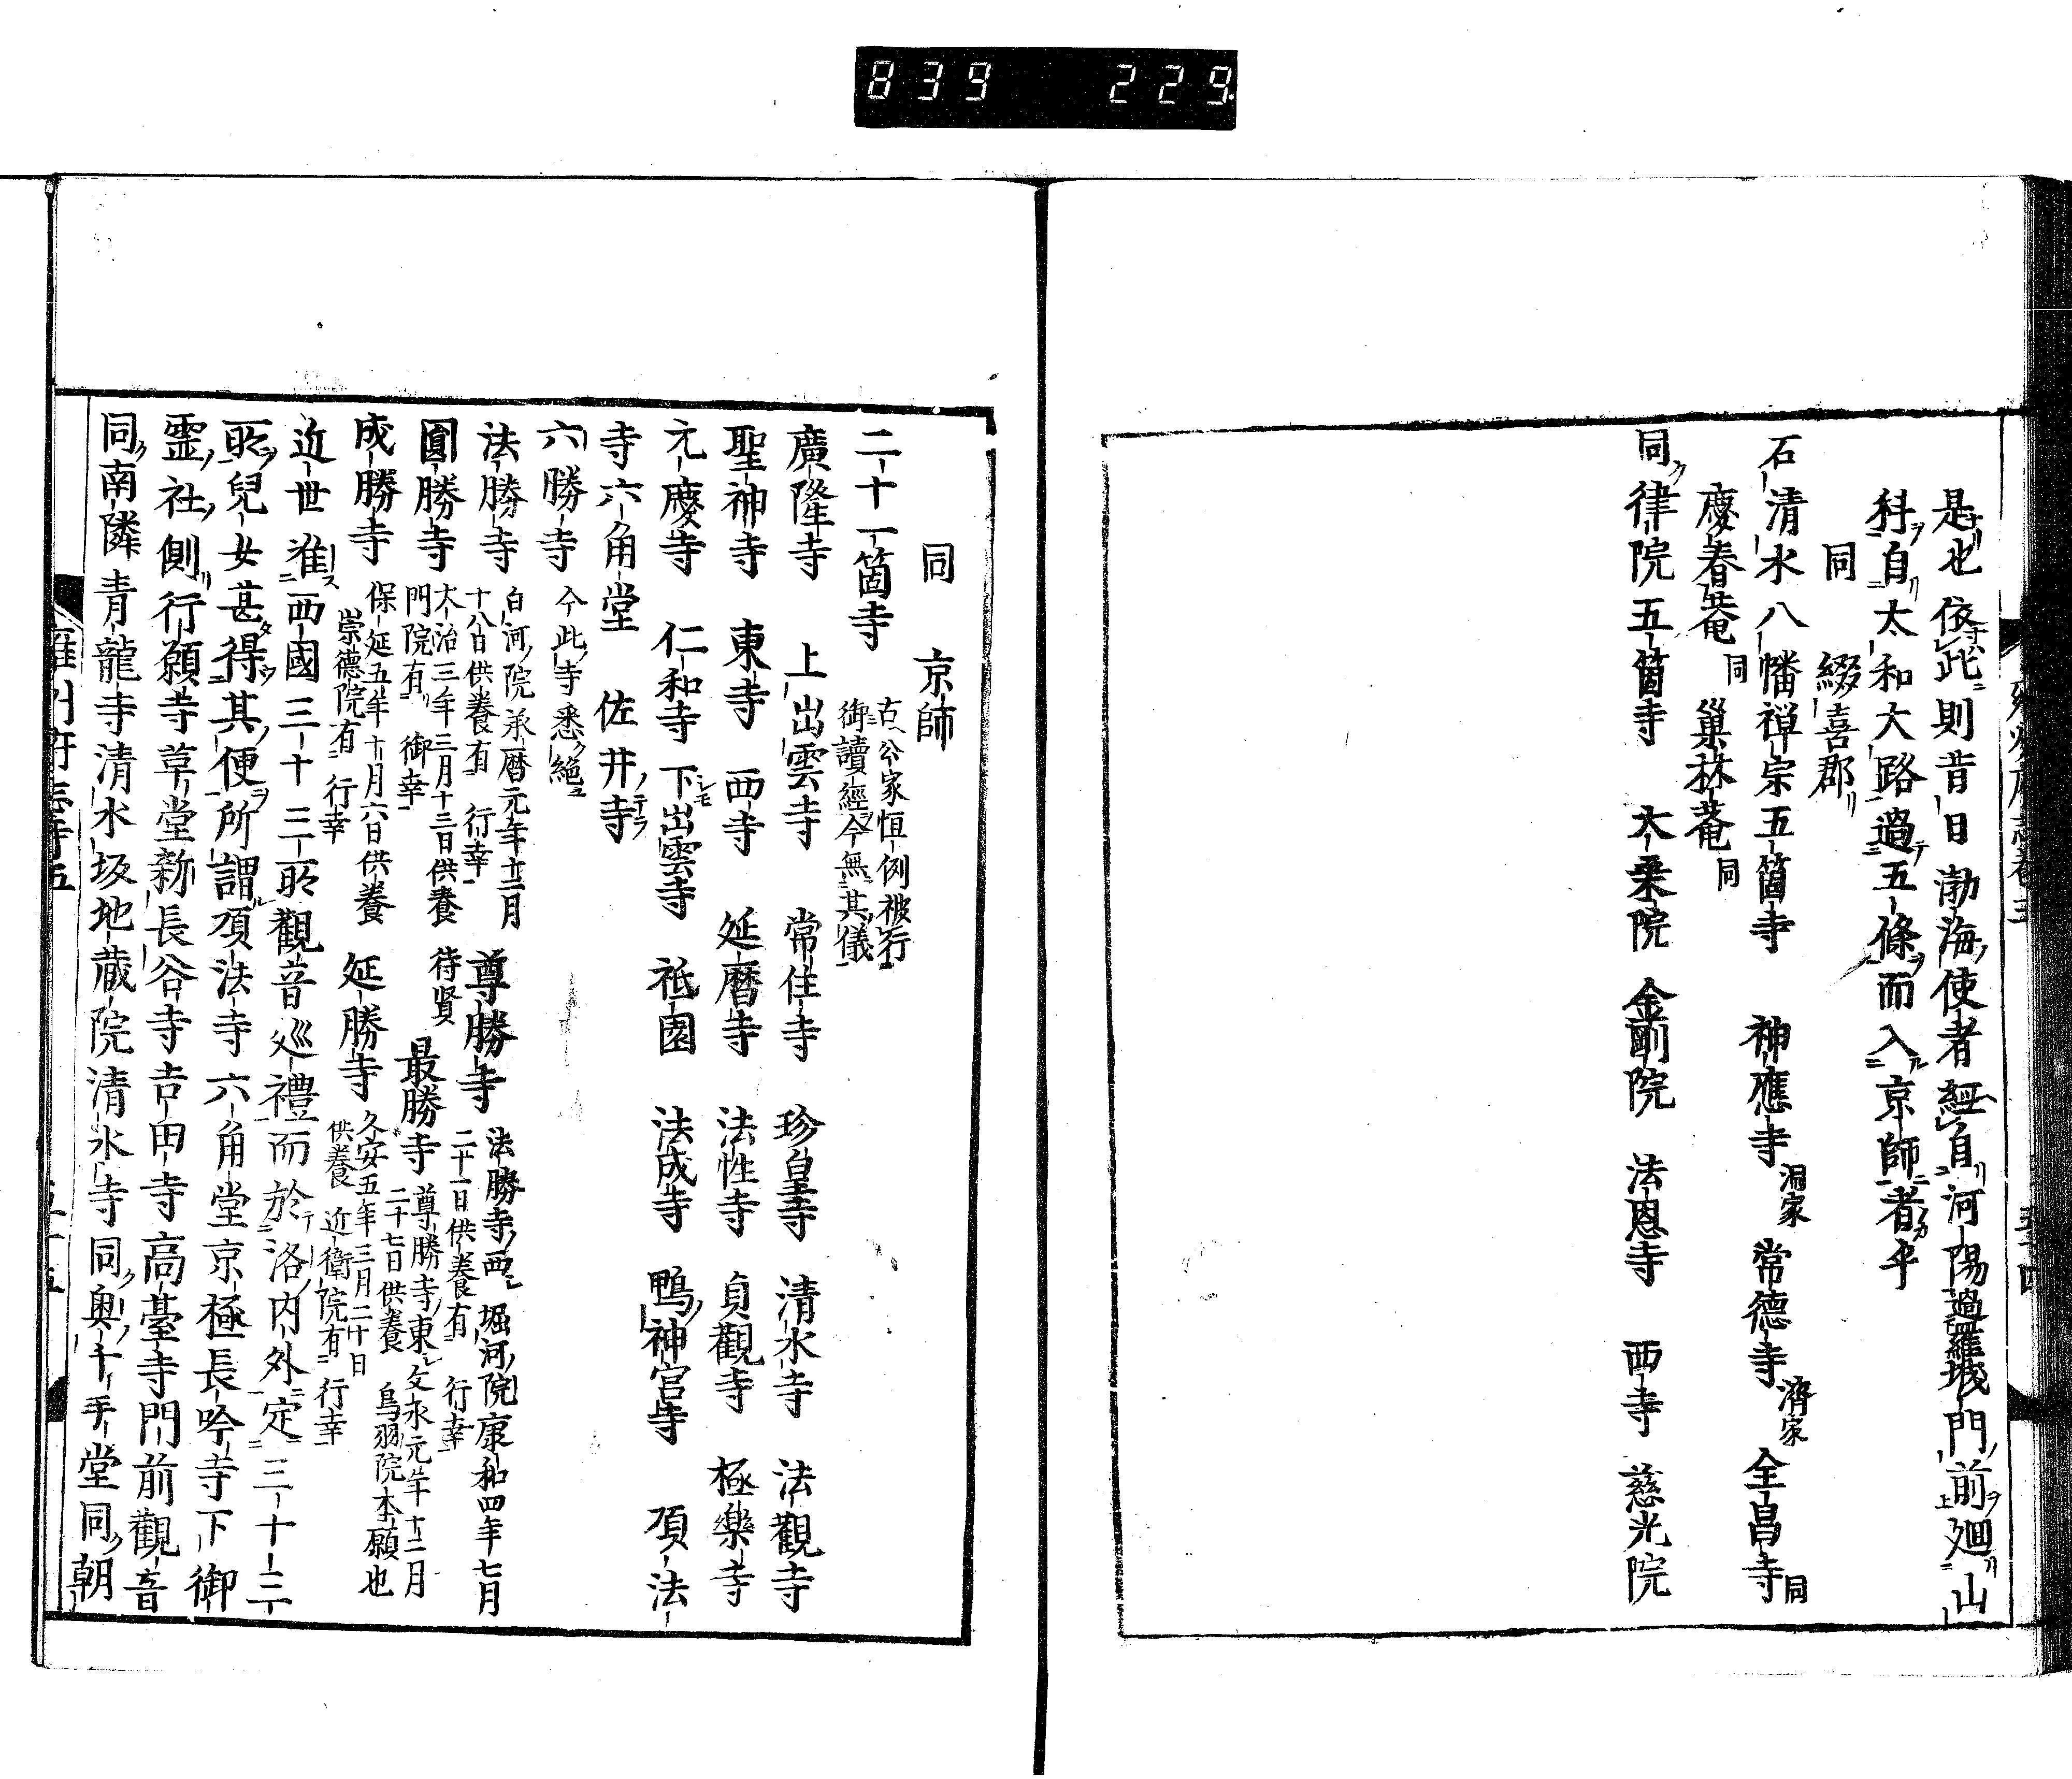 839 229
是也依此則昔日渤海使者經自河陽過羅城門前廻山
科自太和大路過五條而入京師者乎
同 綴喜郡
石清水八幡禅宗五箇寺 神應寺 洞家 常德寺 濟家 全昌寺 同
慶春菴 同 巢林菴 同
同律院五箇寺 大乗院 金剛院 法恩寺 西寺 慈光院
同 京師
二十一箇寺 古公家恒例被行
御讀經今無其儀
廣隆寺 上出雲寺 常住寺 珍皇寺 清水寺 法觀寺
聖神寺 東寺 西寺 延暦寺 法性寺 貞觀寺 極樂寺
元慶寺 仁和寺 下出雲寺 祇園 法成寺 鴨神宮寺 頂法
寺六角堂 佐井寺
六勝寺 今此寺悉絶
法勝寺 白河院承暦元年十二月
十八日供養有行幸 尊勝寺 法勝寺西堀河院康和四年七月
二十一日供養有行幸
圓勝寺 大治三年三月十三日供養待賢
門院有御幸 最勝寺 尊勝寺東久永元年十二月
二十七日供養鳥羽院本願也
成勝寺 保延五年十月六日供養
崇德院有行幸 延勝寺 久安五年三月二十日
供養近衛院有行幸
近世准西國三十三所觀音巡禮而於洛内外定三十三
所兒女甚得其便所謂頂法寺六角堂京極長吟寺下御
霊社側行願寺草堂新長谷寺吉田寺高臺寺門前觀音
同南隣青龍寺清水坂地蔵院清水寺同奥千手堂同朝
雍州府志巻五 五十五